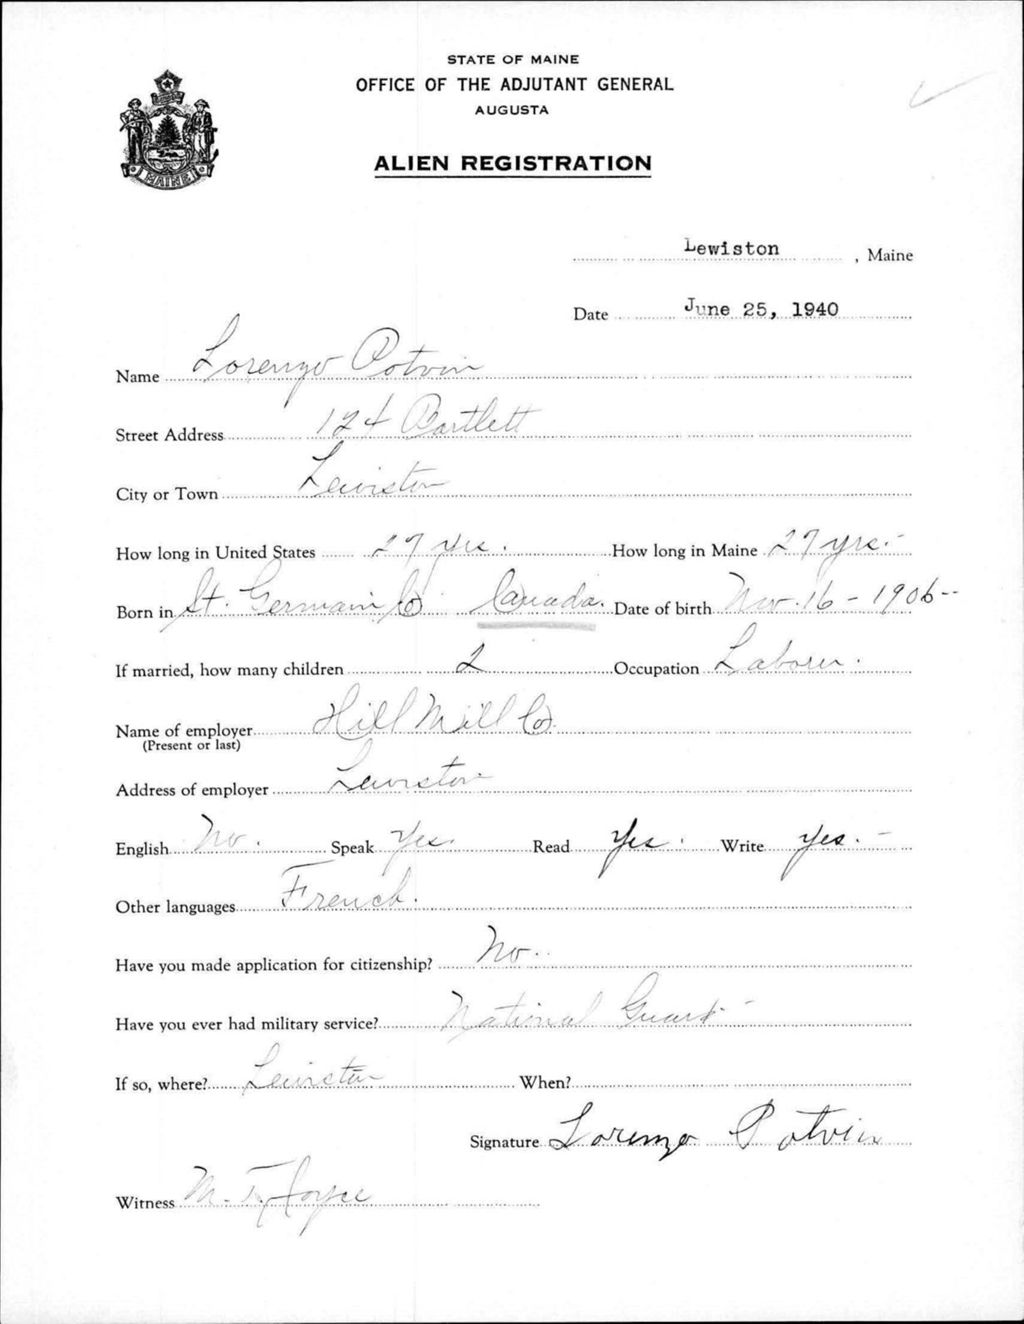 STATE OF MAINE
OFFICE OF THE ADJUTANT GENERAL
AUGUSTA
ALIEN REGISTRATION
MAINE
Lewiston, Maine
Date June 25, 1940
Name Lorenzo Potvin
Street Address 124 Bartlett
City or Town Lewiston
How long in United States 27 yrs. How long in Maine 27 yrs.-
Born in St. Germain Co Canada. Date of birth Nov. 16 - 1906--
If married, how many children 2 Occupation Laborer.
Name of employer Hill Mill Co.
(Present or last)
Address of employer Lewiston
English No. Speak Yes. Read Yes. Write Yes.-
Other languages French.
Have you made application for citizenship? No.
Have you ever had military service? National Guard-
If so, where? Lewiston When?
Signature Lorenzo Potvin
Witness M. T. Joyce